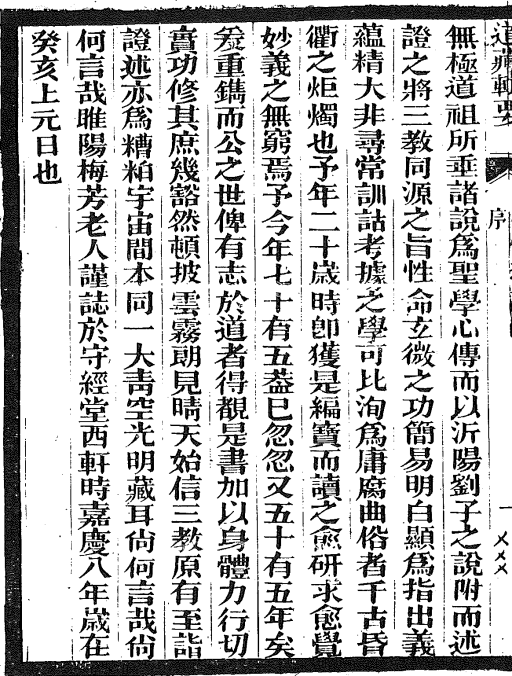 道藏輯要
序
無極道祖所垂諸說爲聖學心傳而以沂陽劉子之說附而述
證之將三教同源之旨性命玄微之功簡易明白顯爲指出義
蘊精大非尋常訓詁考據之學可比洵爲庸腐曲俗者千古昏
衢之炬燭也予年二十歲時卽獲是編寶而讀之愈研求愈覺
妙義之無窮焉予今年七十有五葢已忽忽又五十有五年矣
爰重鐫而公之世俾有志於道者得覩是書加以身體力行切
實功修其庶幾豁然頓披雲霧朗見晴天始信三教原有至詣
證述亦爲糟粕宇宙間本同一大靑空光明藏耳尙何言哉尙
何言哉睢陽梅芳老人謹誌於守經堂西軒時嘉慶八年歲在
癸亥上元日也